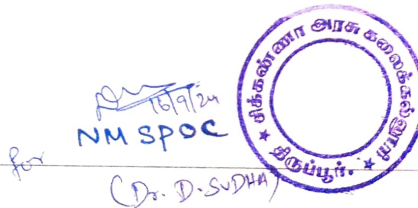 16/9/24
NM SPOC
for
(Dr. D. SUDHA)
சிக்கண்ணா அரசு கலைக்கல்லூரி
★ திருப்பூர். ★